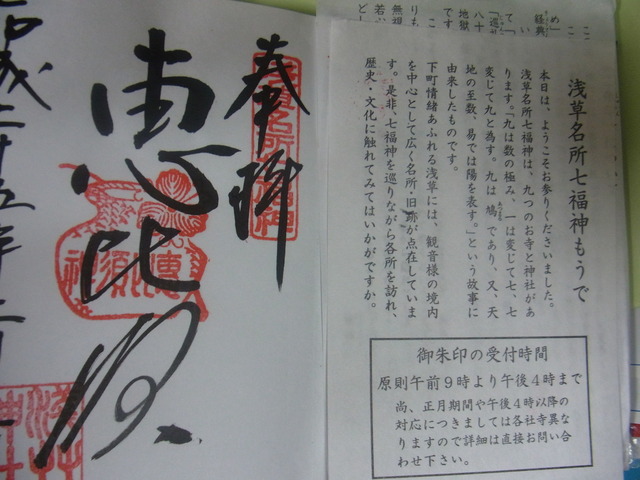 浅草名所七福神もうで
本日は、ようこそお参りくださいました。
浅草名所七福神は、九つのお寺と神社があ
ります。「九は数の極み、一は変じて七、七
変じて九と為す。九は鳩であり、又、天
地の至数、易では陽を表す。」という故事に
由来したものです。
下町情緒あふれる浅草には、観音様の境内
を中心として広く名所・旧跡が点在していま
す。是非、七福神を巡りながら各所を訪れ、
歴史・文化に触れてみてはいかがですか。
御朱印の受付時間
原則午前9時より午後4時まで
尚、正月期間や午後4時以降の
対応につきましては各社寺異な
りますので詳細は直接お問い合
わせ下さい。
奉拝
恵比須
平成二十五年